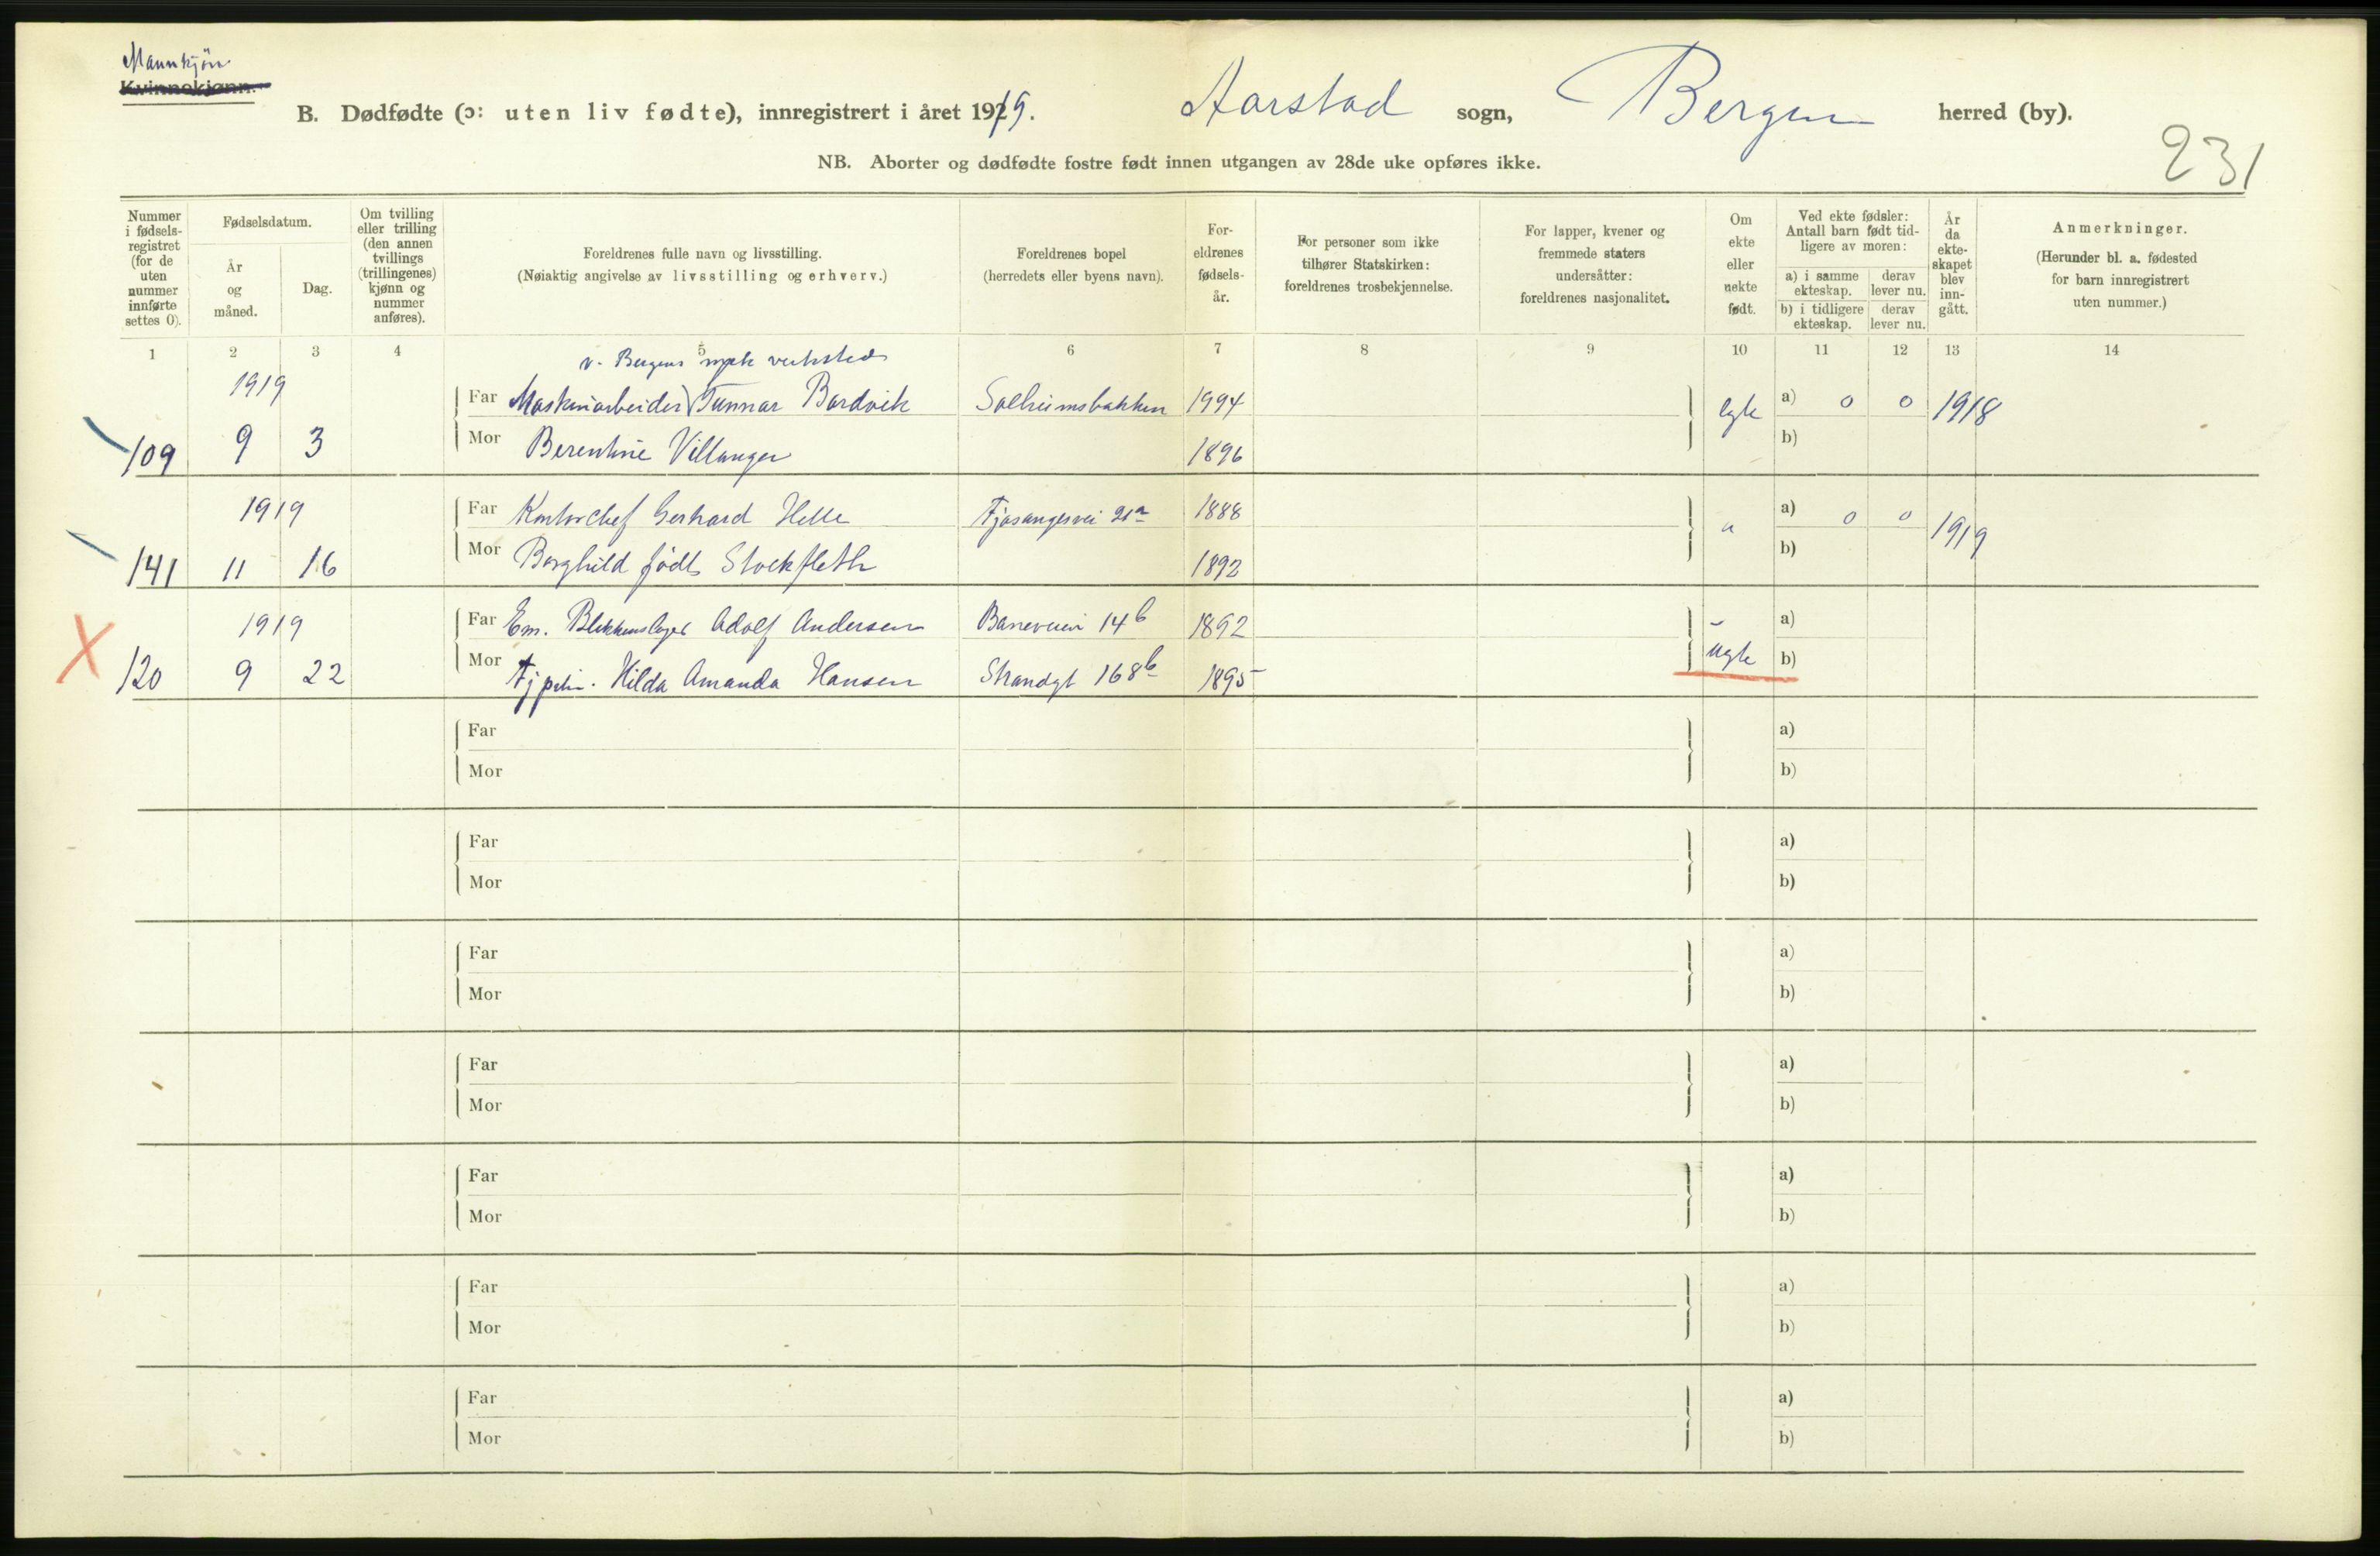 Mannkjøn
Kvinnekjønn.
B. Dødfødte (ɔ: uten liv fødte), innregistrert i året 1919. Aarstad sogn, Bergen herred (by).
231
NB. Aborter og dødfødte fostre født innen utgangen av 28de uke opføres ikke.
Nummer i fødsels-registret (for de uten nummer innførte settes 0).
Fødselsdatum.
År og måned.
Dag.
Om tvilling eller trilling (den annen tvillings (trillingenes) kjønn og nummer anføres).
Foreldrenes fulle navn og livsstilling.
(Nøiaktig angivelse av livsstilling og erhverv.)
Foreldrenes bopel
(herredets eller byens navn).
For-eldrenes fødsels-år.
For personer som ikke tilhører Statskirken: foreldrenes trosbekjennelse.
For lapper, kvener og fremmede staters undersåtter: foreldrenes nasjonalitet.
Om ekte eller uekte født.
Ved ekte fødsler: Antall barn født tid-ligere av moren:
a) i samme ekteskap.
derav lever nu.
b) i tidligere ekteskap.
derav lever nu.
År da ekte-skapet blev inn-gått.
Anmerkninger.
(Herunder bl. a. fødested for barn innregistrert uten nummer.)
1 2 3 4 5 6 7 8 9 10 11 12 13 14
v. Bergens mek verksted
1919 Far Maskinarbeider Gunnar Bardvik Solheimsbakken 1994 egte a) 0 0 1918
109 9 3 Mor Berentine Villanger 1896 b)
1919 Far Kontorchef Gerhard Helle Fjøsangervei 21a 1888 " a) 0 0 1919
141 11 16 Mor Borghild født Stockfleth 1892 b)
X 1919 Far Em. Blikkenslager Adolf Andersen Baneveien 14b 1892 a)
120 9 22 Mor Hilda Amanda Hansen Strandgt 168b 1895 uegte b)
Far a)
Mor b)
Far a)
Mor b)
Far a)
Mor b)
Far a)
Mor b)
Far a)
Mor b)
Far a)
Mor b)
Far a)
Mor b)